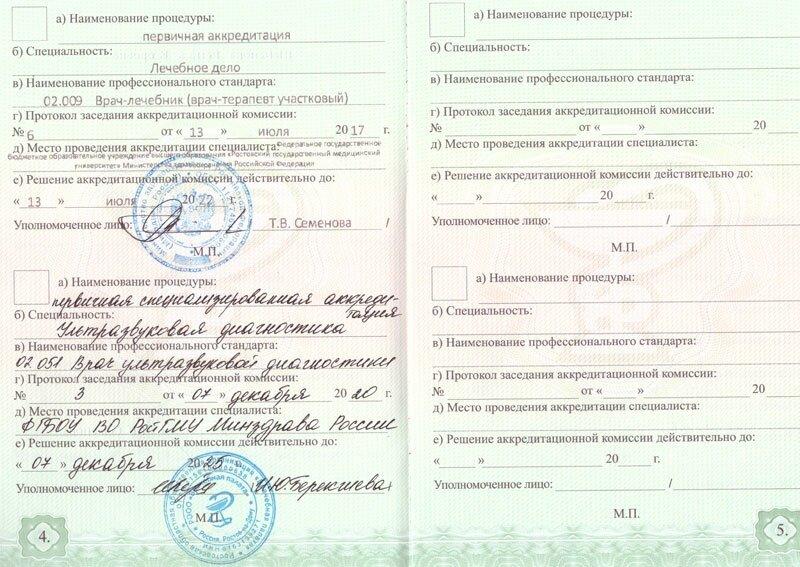 а) Наименование процедуры:
первичная аккредитация
б) Специальность:
Лечебное дело
в) Наименование профессионального стандарта:
02.009 Врач-лечебник (врач-терапевт участковый)
г) Протокол заседания аккредитационной комиссии:
№ 6 от « 13 » июля 2017 г.
д) Место проведения аккредитации специалиста: Федеральное государственное
бюджетное образовательное учреждение высшего образования «Ростовский государственный медицинский
университет» Министерства здравоохранения Российской Федерации
е) Решение аккредитационной комиссии действительно до:
« 13 » июля 2022 г.
Уполномоченное лицо: / Т.В. Семенова /
М.П.
а) Наименование процедуры:
первичная специализированная аккреди-
тация
б) Специальность:
Ультразвуковая диагностика
в) Наименование профессионального стандарта:
02.051 Врач ультразвуковой диагностики
г) Протокол заседания аккредитационной комиссии:
№ 3 от « 07 » декабря 2020 г.
д) Место проведения аккредитации специалиста:
ФГБОУ ВО РостГМУ Минздрава России
е) Решение аккредитационной комиссии действительно до:
« 07 » декабря 2025 г.
Уполномоченное лицо:
М.П.
4.
а) Наименование процедуры:
б) Специальность:
в) Наименование профессионального стандарта:
г) Протокол заседания аккредитационной комиссии:
№ от « » 20 г.
д) Место проведения аккредитации специалиста:
е) Решение аккредитационной комиссии действительно до:
« » 20 г.
Уполномоченное лицо: / /
М.П.
а) Наименование процедуры:
б) Специальность:
в) Наименование профессионального стандарта:
г) Протокол заседания аккредитационной комиссии:
№ от « » 20 г.
д) Место проведения аккредитации специалиста:
е) Решение аккредитационной комиссии действительно до:
« » 20 г.
Уполномоченное лицо: /
М.П.
5.